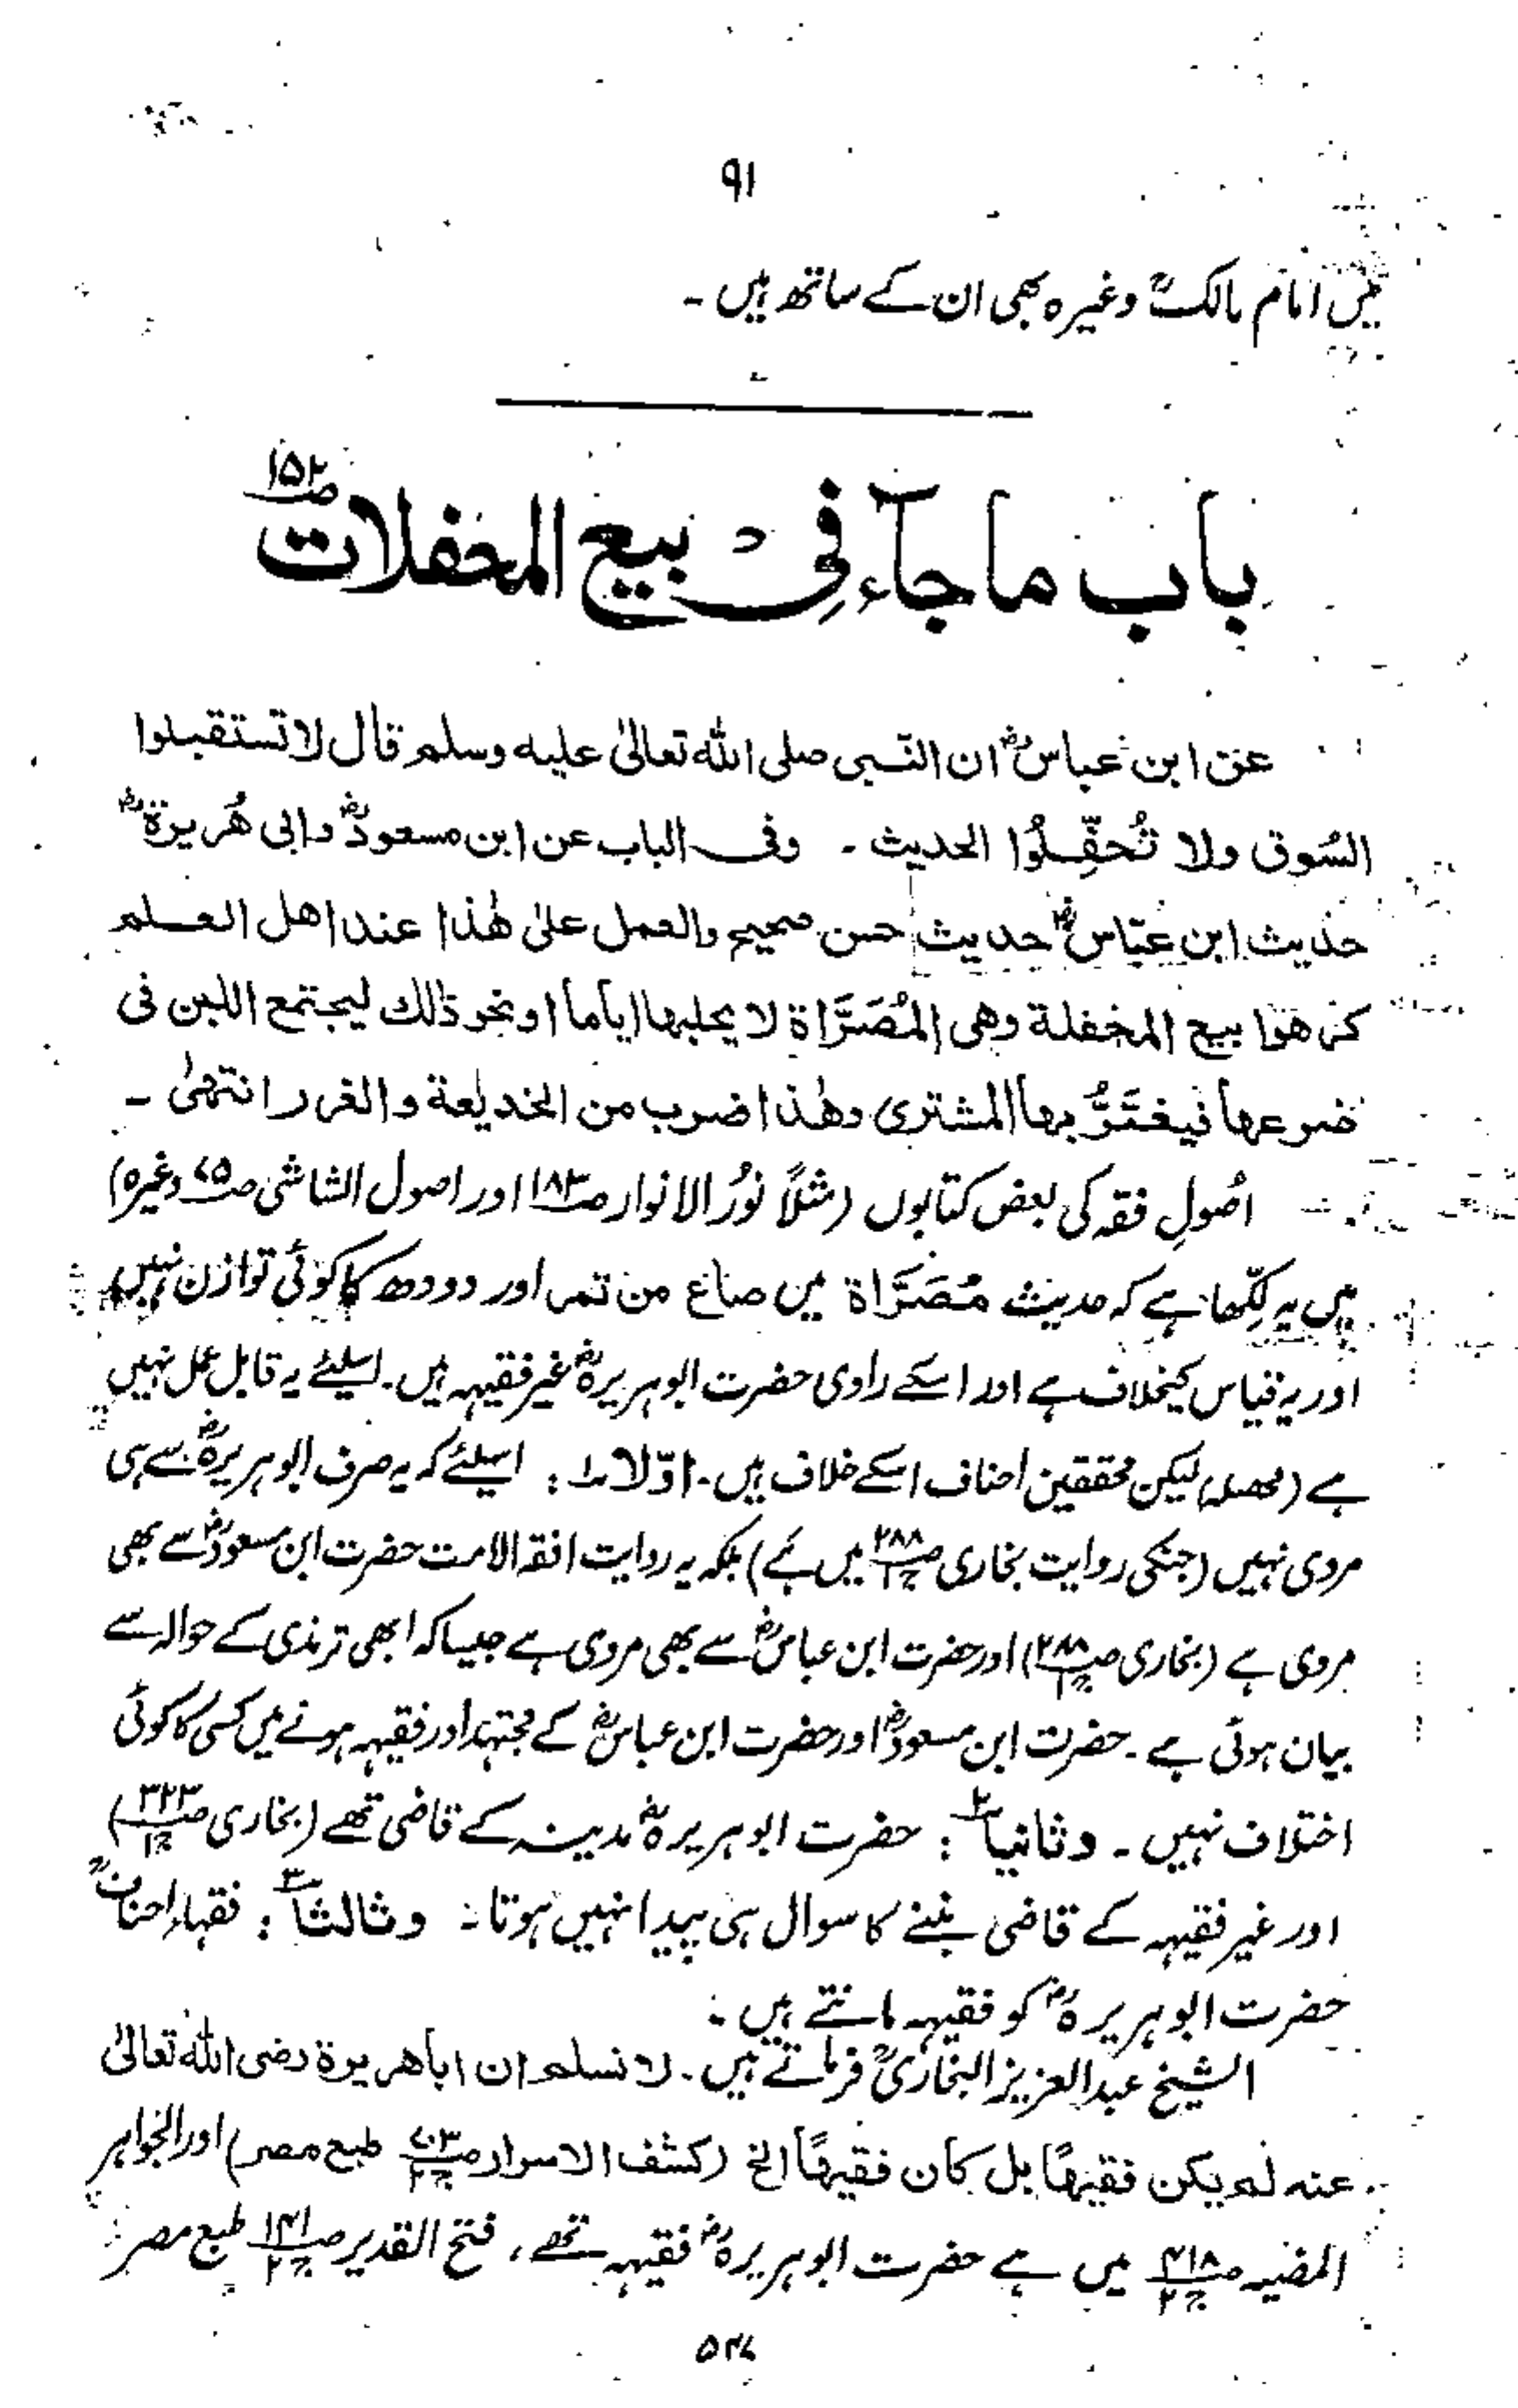 ۹۱
میں امام مالکؒ وغیرہ بھی ان کے ساتھ ہیں ۔
باب ما جآء فی بیع المحفلات ص۱۵۲
عن ابن عباسؓ ان النبی صلی الله تعالیٰ علیه وسلم قال لا تستقبلوا
السُوق ولا تُحفِّلُوا الحدیث ۔ وفی الباب عن ابن مسعودؓ وابی هُریرةؓ
حدیث ابن عبّاسؓ حدیث حسن صحیح والعمل علیٰ هٰذا عند اهل العلم
کرهوا بیع المحفلة وهی المُصَرَّاة لا یحلبها ایاماً او نحو ذالك لیجتمع اللبن فی
ضرعها فیغتَرُّ بها المشتری وهٰذا ضرب من الخدیعة والغرر انتهیٰ ۔
اصُولِ فقہ کی بعض کتابوں (مثلاً نُورُ الانوار ص۱۸۳ اور اصول الشاشی ص۷۵ وغیرہ)
میں یہ لکّھا ہے کہ حدیث مُصَرَّاة میں صاع من تمر اور دودھ کا کوئی توازن نہیں
اور یہ قیاس کیخلاف ہے اور اسکے راوی حضرت ابوہریرہؓ غیر فقیہہ ہیں۔ اسلئے یہ قابل عمل نہیں
ہے (محصلہ) لیکن محققین احناف اسکے خلاف ہیں۔ اوّلاً ۱ : اسلئے کہ یہ صرف ابوہریرہؓ سے ہی
مروی نہیں (جنکی روایت بخاری ص۲۸۸ ج۱ میں ہے) بلکہ یہ روایت افقہ الامت حضرت ابن مسعودؓ سے بھی
مروی ہے (بخاری ص۲۸۸ ج۱) اور حضرت ابن عباسؓ سے بھی مروی ہے جیسا کہ ابھی ترمذی کے حوالہ سے
بیان ہوئی ہے ۔ حضرت ابن مسعودؓ اور حضرت ابن عباسؓ کے مجتہد اور فقیہہ ہونے میں کسی کا کوئی
اختلاف نہیں ۔ وثانیاً ۲ : حضرت ابوہریرہؓ مدینہ کے قاضی تھے (بخاری ص۳۲۳ ج۱)
اور غیر فقیہہ کے قاضی بننے کا سوال ہی پیدا نہیں ہوتا ۔ وثالثاً ۳ : فقہاء احنافؒ
حضرت ابوہریرہؓ کو فقیہہ مانتے ہیں :
الشیخ عبدالعزیز البخاریؒ فرماتے ہیں ۔ لا نسلم ان اباهریرة رضی الله تعالیٰ
عنه لم یکن فقیهًا بل کان فقیهًا الخ (کشف الاسرار ص۷۰۳ ج۲ طبع مصر) اور الجواہر
المضیہ ص۴۱۸ ج۲ میں ہے حضرت ابوہریرہؓ فقیہہ تھے ، فتح القدیر ص۱۴۱ ج۲ طبع مصر
۵۴۷